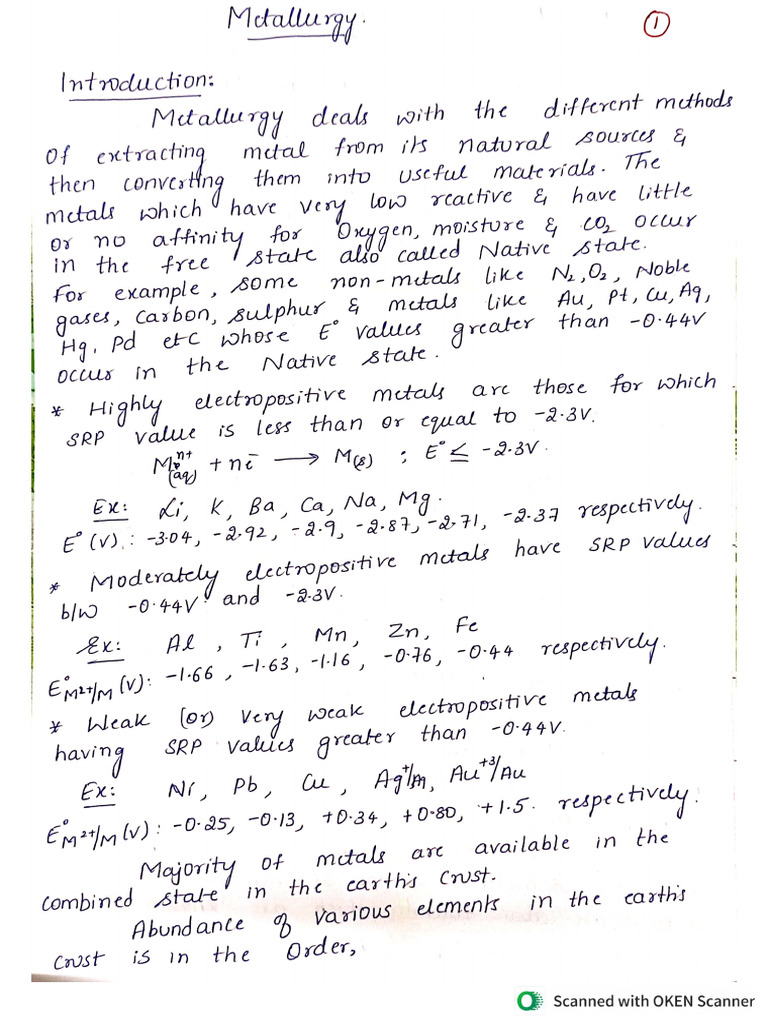 Metallurgy.
1
Introduction:
Metallurgy deals with the different methods
of extracting metal from its natural sources &
then converting them into useful materials. The
metals which have very low reactive & have little
or no affinity for Oxygen, moisture & CO2 occur
in the free state also called Native state.
For example, some non-metals like N2, O2, Noble
gases, Carbon, sulphur & metals like Au, Pt, Cu, Ag,
Hg, Pd etc whose E° values greater than -0.44V
occur in the Native state.
* Highly electropositive metals are those for which
SRP value is less than or equal to -2.3V.
M^n+ (aq) + nē ⟶ M(s) ; E° ≤ -2.3V.
Ex: Li, K, Ba, Ca, Na, Mg.
E°(V) : -3.04, -2.92, -2.9, -2.87, -2.71, -2.37 respectively.
* Moderately electropositive metals have SRP values
b/w -0.44V and -2.3V.
Ex: Al, Ti, Mn, Zn, Fe
E°M2+/M (V): -1.66, -1.63, -1.16, -0.76, -0.44 respectively.
* Weak (or) very weak electropositive metals
having SRP values greater than -0.44V.
Ex: Ni, Pb, Cu, Ag+/, Au+3/Au
E°M2+/M (V): -0.25, -0.13, +0.34, +0.80, +1.5. respectively.
Majority of metals are available in the
combined state in the earth's crust.
Abundance of various elements in the earth's
crust is in the Order,
Scanned with OKEN Scanner